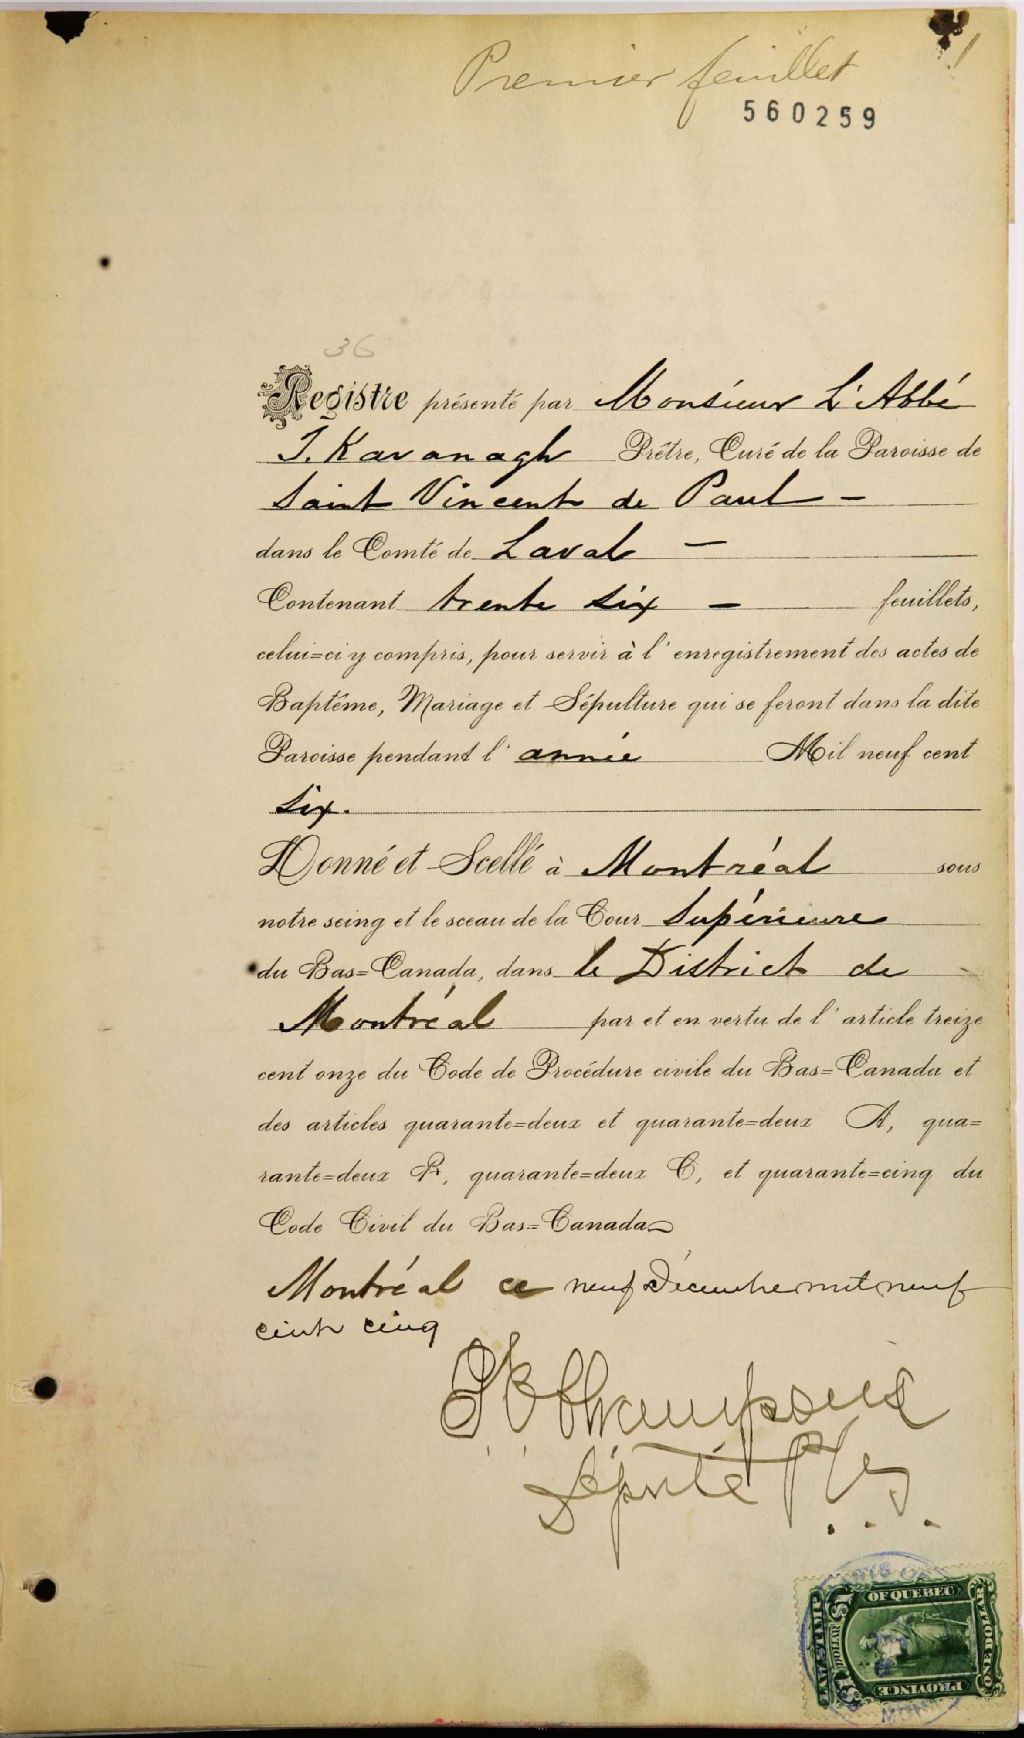 Premier feuillet 1
560259
36
Registre présenté par Monsieur L'Abbé
J. Kavanagh Prêtre, Curé de la Paroisse de
Saint Vincent de Paul —
dans le Comté de Laval —
Contenant trente six — feuillets,
celui=ci y compris, pour servir à l'enregistrement des actes de
Baptême, Mariage et Sépulture qui se feront dans la dite
Paroisse pendant l'année Mil neuf cent
six.
Donné et Scellé à Montréal sous
notre seing et le sceau de la Cour Supérieure
du Bas=Canada, dans le District de
Montréal par et en vertu de l'article treize
cent onze du Code de Procédure civile du Bas=Canada et
des articles quarante=deux et quarante=deux A, qua=
rante=deux B, quarante=deux C, et quarante=cinq du
Code Civil du Bas=Canada
Montréal ce neuf Décembre mil neuf
cent cinq
Député P
LAW STAMP
$1 DOLLAR $1
OF QUEBEC
PROVINCE
ONE DOLLAR